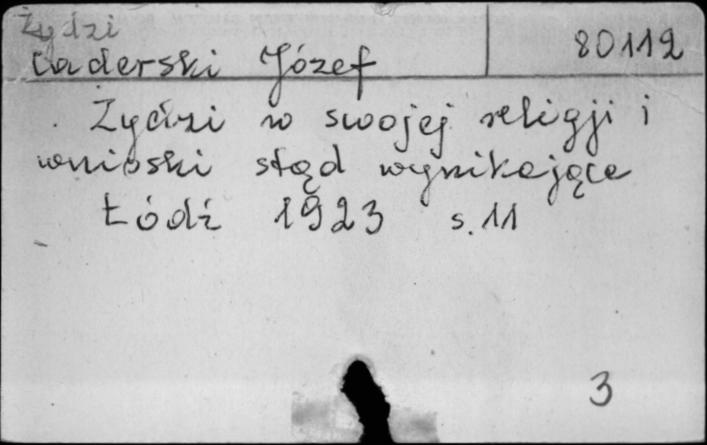 Żydzi
Caderski Józef 80112
Żydzi w swojej religji i
wnioski stąd wynikające
Łódź 1923 s. 11
3